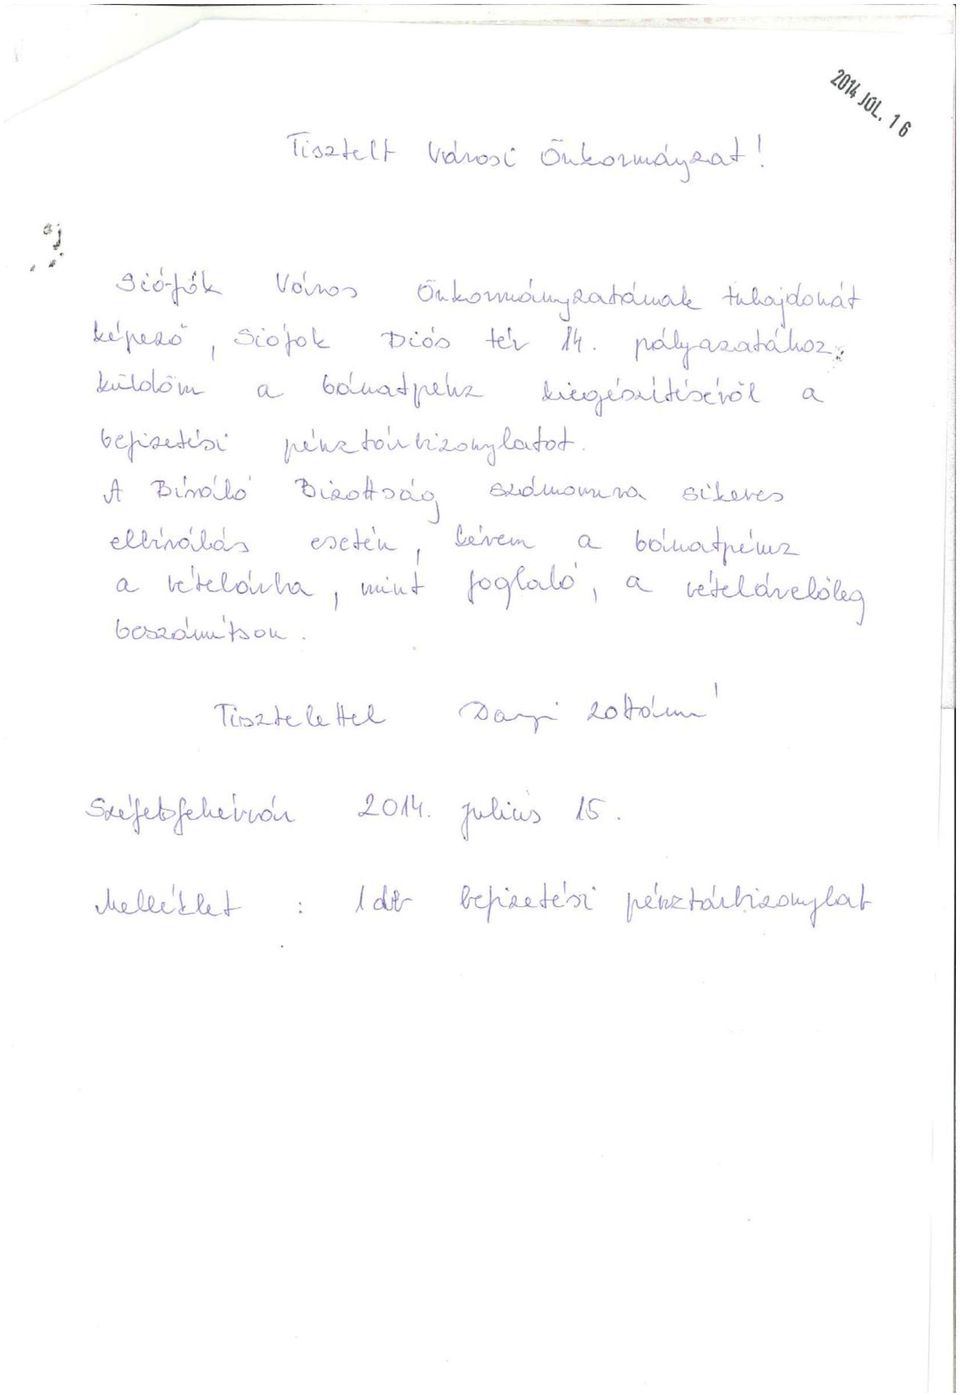 2014 JÚL. 16
Tisztelt Városi Önkormányzat!
Siófok Város Önkormányzatának tulajdonát
képező, Siófok Diós tér 14. pályázatához
küldöm a bánatpénz kiegészítéséről a
befizetési pénztárbizonylatot.
A Bíráló Bizottság számomra sikeres
elbírálás esetén, kérem a bánatpénz
a vételárba, mint foglaló, a vételárelőleg
beszámítson.
Tisztelettel Zoltánné
Székesfehérvár 2014. július 15.
Melléklet : 1 db befizetési pénztárbizonylat